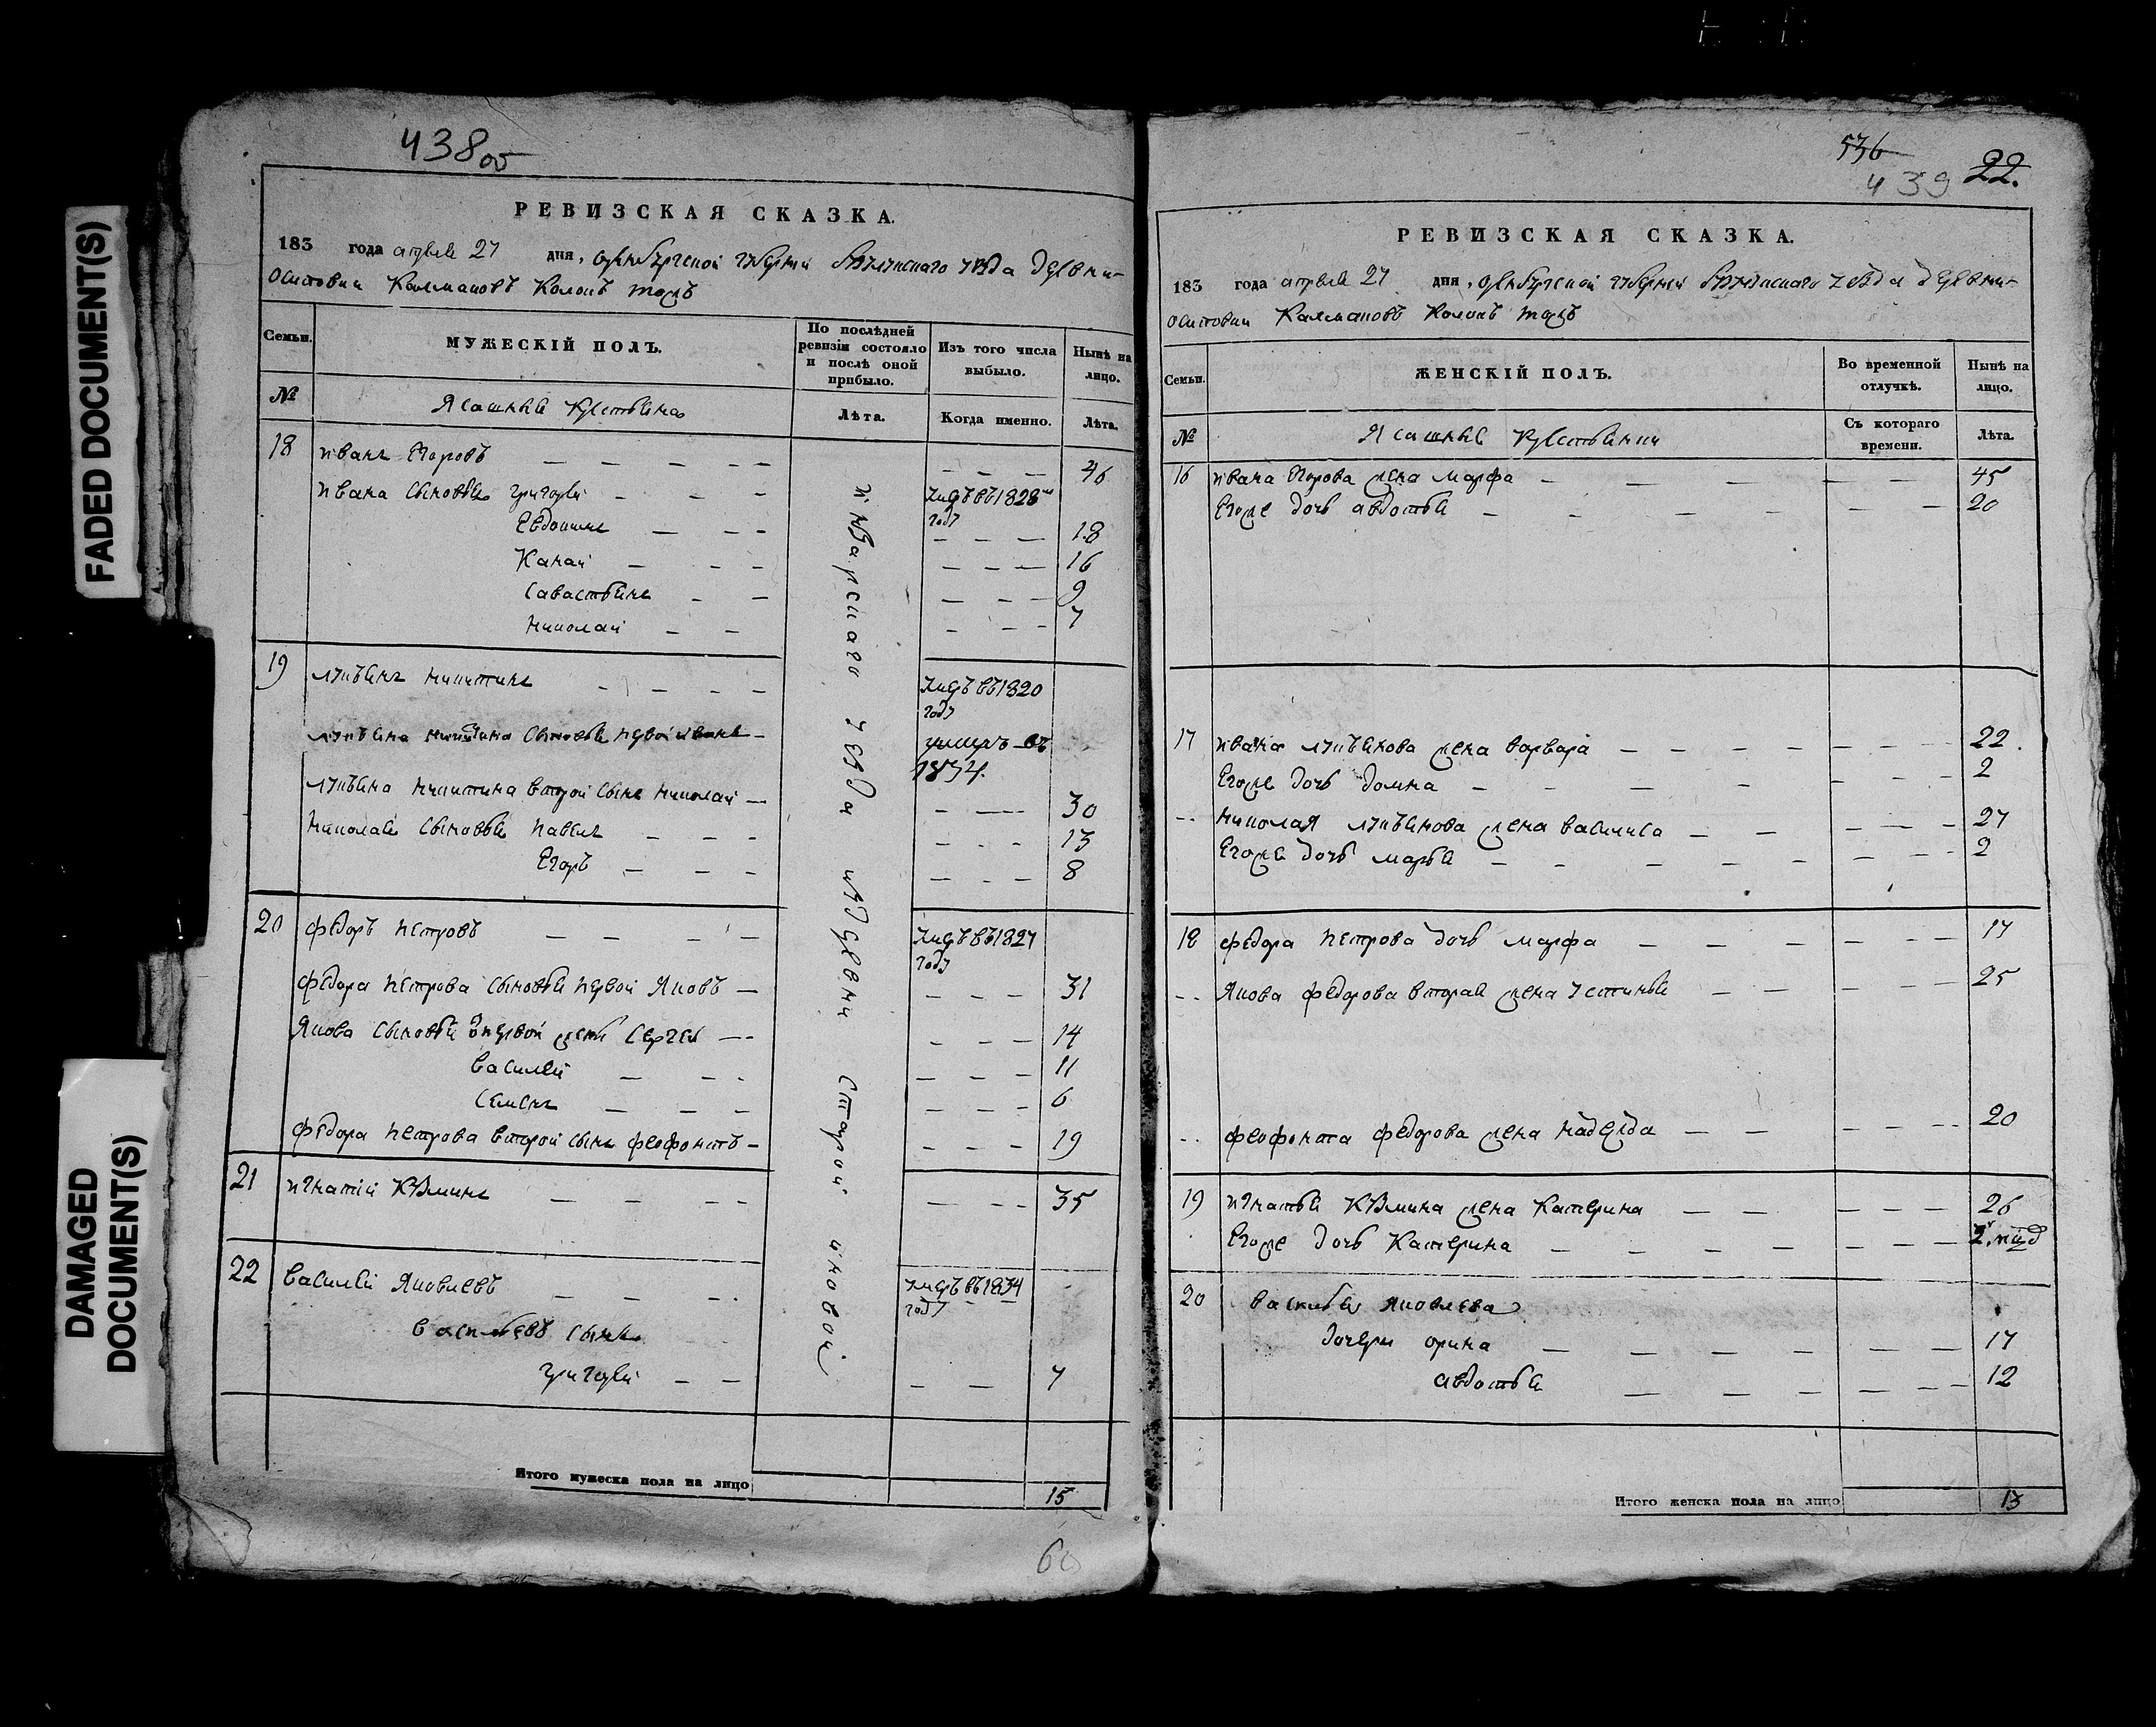 FADED DOCUMENT(S)
DAMAGED DOCUMENT(S)
438 об
РЕВИЗСКАЯ СКАЗКА.
183 года апреля 27 дня, оренбургской губернии уезда деревни
Колокъ тожъ
Семьи.
МУЖЕСКІЙ ПОЛЪ.
По послѣдней ревизіи состояло и послѣ оной прибыло.
Изъ того числа выбыло.
Нынѣ на лицо.
№
Ясашныи крестьяна
Лѣта.
Когда именно.
Лѣта.
18 иванъ Егоровъ 46
ивана сыновья григорей умеръ въ 1828м году
Евдокимъ 18
Канай 16
Савастьянъ 9
николай 7
19 лукьянъ никитинъ умеръ въ 1820 году
лукьяна никитина сыновья первой иванъ умеръ въ 1834.
лукьяна никитина второй сынъ николай 30
николая сыновья павелъ 13
Егоръ 8
20 федоръ петровъ умеръ въ 1827 году
федора петрова сыновья первой Яковъ 31
Якова сыновья первой жены сергей 14
василей 11
семенъ 6
федора петрова второй сынъ феофонтъ 19
21 игнатий Кузминъ 35
22 василей Яковлевъ умеръ въ 1834 году
васильевъ сынъ
григорей 7
уезда из деревни старой
Итого мужеска пола на лицо 15
60
536
439
22.
РЕВИЗСКАЯ СКАЗКА.
183 года апреля 27 дня, оренбургской губернии уезда деревни
Колокъ тожъ
Семьи.
ЖЕНСКІЙ ПОЛЪ.
Во временной отлучкѣ.
Нынѣ на лицо.
№
Ясашные крестьянки
Съ котораго времени.
Лѣта.
16 ивана Егорова жена марфа 45
Егоже дочь авдотья 20
17 ивана лукьянова жена варвара 22.
Егоже дочь домна 2
николая лукьянова жена василиса 27
Егоже дочь марья 2
18 федора петрова дочь марфа 17
Якова федорова вторая жена устинья 25
феофонта федорова жена надежда 20
19 игнатья Кузмина жена Катерина 26
Егоже дочь Катерина 2.
20 василья яковлева
дочери орина 17
авдотья 12
Итого женска пола на лицо 13